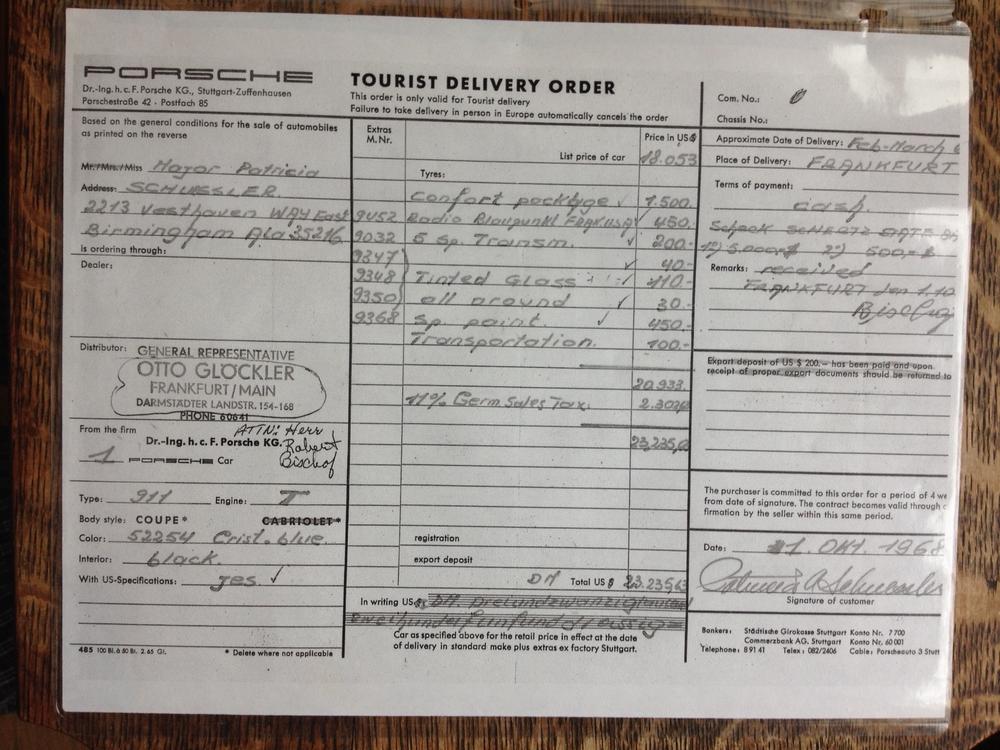 PORSCHE
Dr.-Ing. h. c. F. Porsche KG., Stuttgart-Zuffenhausen
Porschestraße 42 · Postfach 85
TOURIST DELIVERY ORDER
This order is only valid for Tourist delivery
Failure to take delivery in person in Europe automatically cancels the order
Com. No.:
Chassis No.:
Based on the general conditions for the sale of automobiles
as printed on the reverse
Mr./Mrs./Miss Major Patricia
Address: SCHUESSLER
2213 Vesthaven WAY East
Birmingham Ala 35216
is ordering through:
Dealer:
Distributor:
GENERAL REPRESENTATIVE
OTTO GLÖCKLER
FRANKFURT/MAIN
DARMSTÄDTER LANDSTR. 154-168
PHONE 60641
ATTN: Herr
Robert
Bischof
From the firm
Dr.-Ing. h. c. F. Porsche KG.
1 PORSCHE Car
Type: 911 Engine: T
Body style: COUPE* CABRIOLET*
Color: 52254 Crist. blue
Interior: black.
With US-Specifications: yes ✓
485 100 Bl. à 50 Bl. 2. 65 Gl.
* Delete where not applicable
Extras
M. Nr.
Price in US$
List price of car 18.053
Tyres:
Confort packtyge ✓ 1.500.
9452 Radio Blaupunkt FRANKF USA ✓ 450.
9032 5 Sp. Transm. ✓ 200.-
9347 ✓ 40.-
9348 Tinted Glass ✓ 110.-
9350 all around ✓ 30.-
9368 Sp. paint. ✓ 450.-
Transportation. 100.-
20.933.
11% Germ Sales Tax.
registration
export deposit
DM Total US $
In writing US $ DM
Car as specified above for the retail price in effect at the date
of delivery in standard make plus extras ex factory Stuttgart.
Approximate Date of Delivery: Feb-March
Place of Delivery: FRANKFURT
Terms of payment:
cash.
1) 5.000,$ 2) 500,-$
Remarks: received
FRANKFURT den 1.10
Export deposit of US $ 200.— has been paid and upon
receipt of proper export documents should be returned to
The purchaser is committed to this order for a period of 4 we
from date of signature. The contract becomes valid through c
firmation by the seller within this same period.
Date: 1. OKT. 1968
Signature of customer
Bankers: Städtische Girokasse Stuttgart Konto Nr. 7 700
Commerzbank AG. Stuttgart Konto Nr. 60 001
Telephone: 8 91 41 Telex: 082/2406 Cable: Porscheauto 3 Stutt